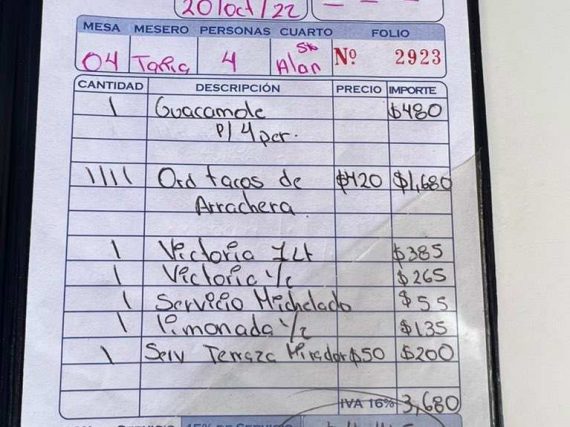 20/oct/22
MESA MESERO PERSONAS CUARTO FOLIO
04 Tapia 4 Sr Alan Nº 2923
CANTIDAD DESCRIPCIÓN PRECIO IMPORTE
1 Guacamole $480
p/4 per.
1111 Ord tacos de $420 $1,680
Arrachera
1 Victoria 1Lt $385
1 Victoria 1/2 $265
1 Servicio Michelado $55
1 limonada 1/2 $135
1 Serv Terraza Mirador $50 $200
IVA 16% 3,680